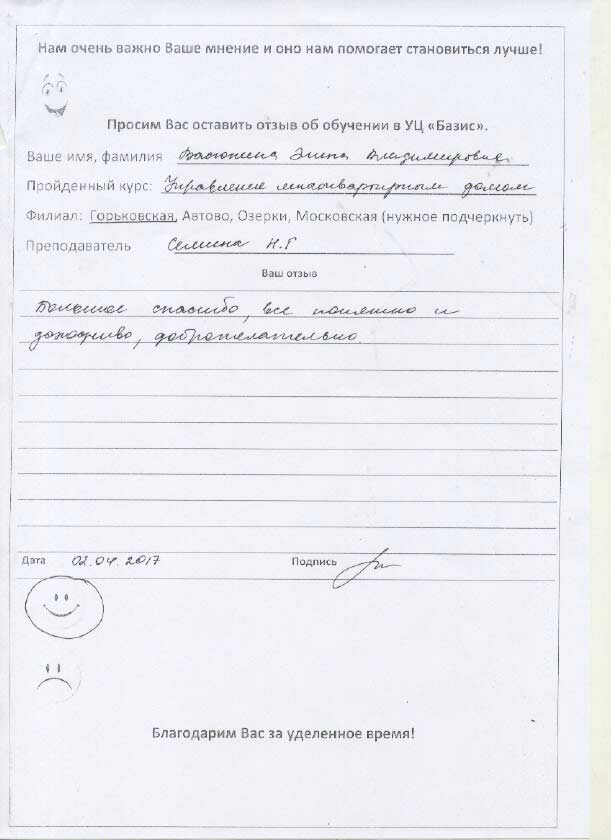 Нам очень важно Ваше мнение и оно нам помогает становиться лучше!
Просим Вас оставить отзыв об обучении в УЦ «Базис».
Ваше имя, фамилия Васютина Элина Владимировна
Пройденный курс: Управление многоквартирным домом
Филиал: Горьковская, Автово, Озерки, Московская (нужное подчеркнуть)
Преподаватель Семина Н.Г
Ваш отзыв
Большое спасибо, все понятно и
доходчиво, доброжелательно.
Дата 02.04.2017 Подпись
Благодарим Вас за уделенное время!